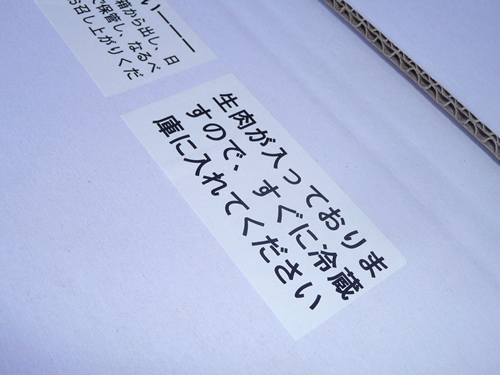 い――
箱から出し、日
で保管し、なるべ
お召し上がりくだ
生肉が入っておりま
すので、すぐに冷蔵
庫に入れてください